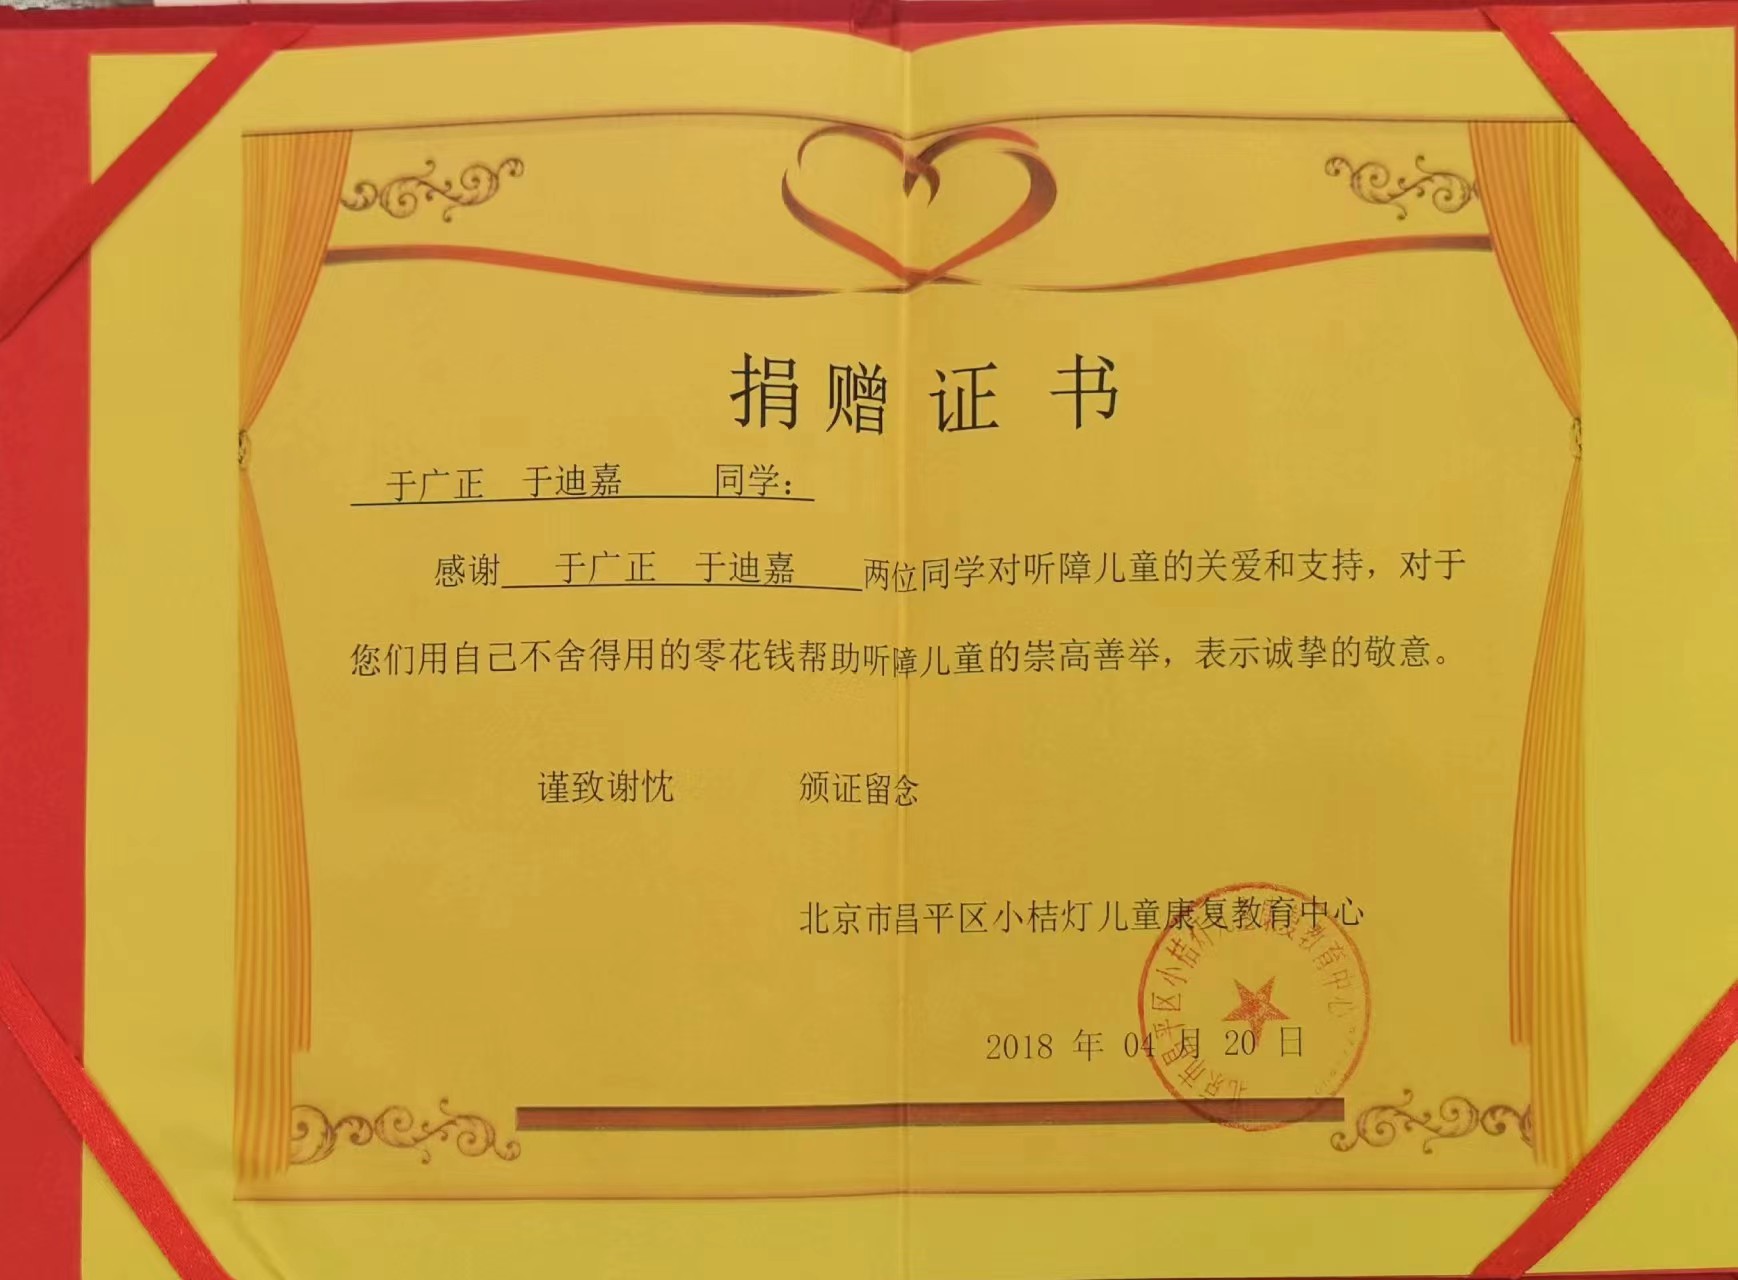 捐赠证书
于广正 于迪嘉 同学：
感谢 于广正 于迪嘉 两位同学对听障儿童的关爱和支持，对于
您们用自己不舍得用的零花钱帮助听障儿童的崇高善举，表示诚挚的敬意。
谨致谢忱 颁证留念
北京市昌平区小桔灯儿童康复教育中心
2018 年 04 月 20 日
北京市昌平区小桔灯儿童康复教育中心